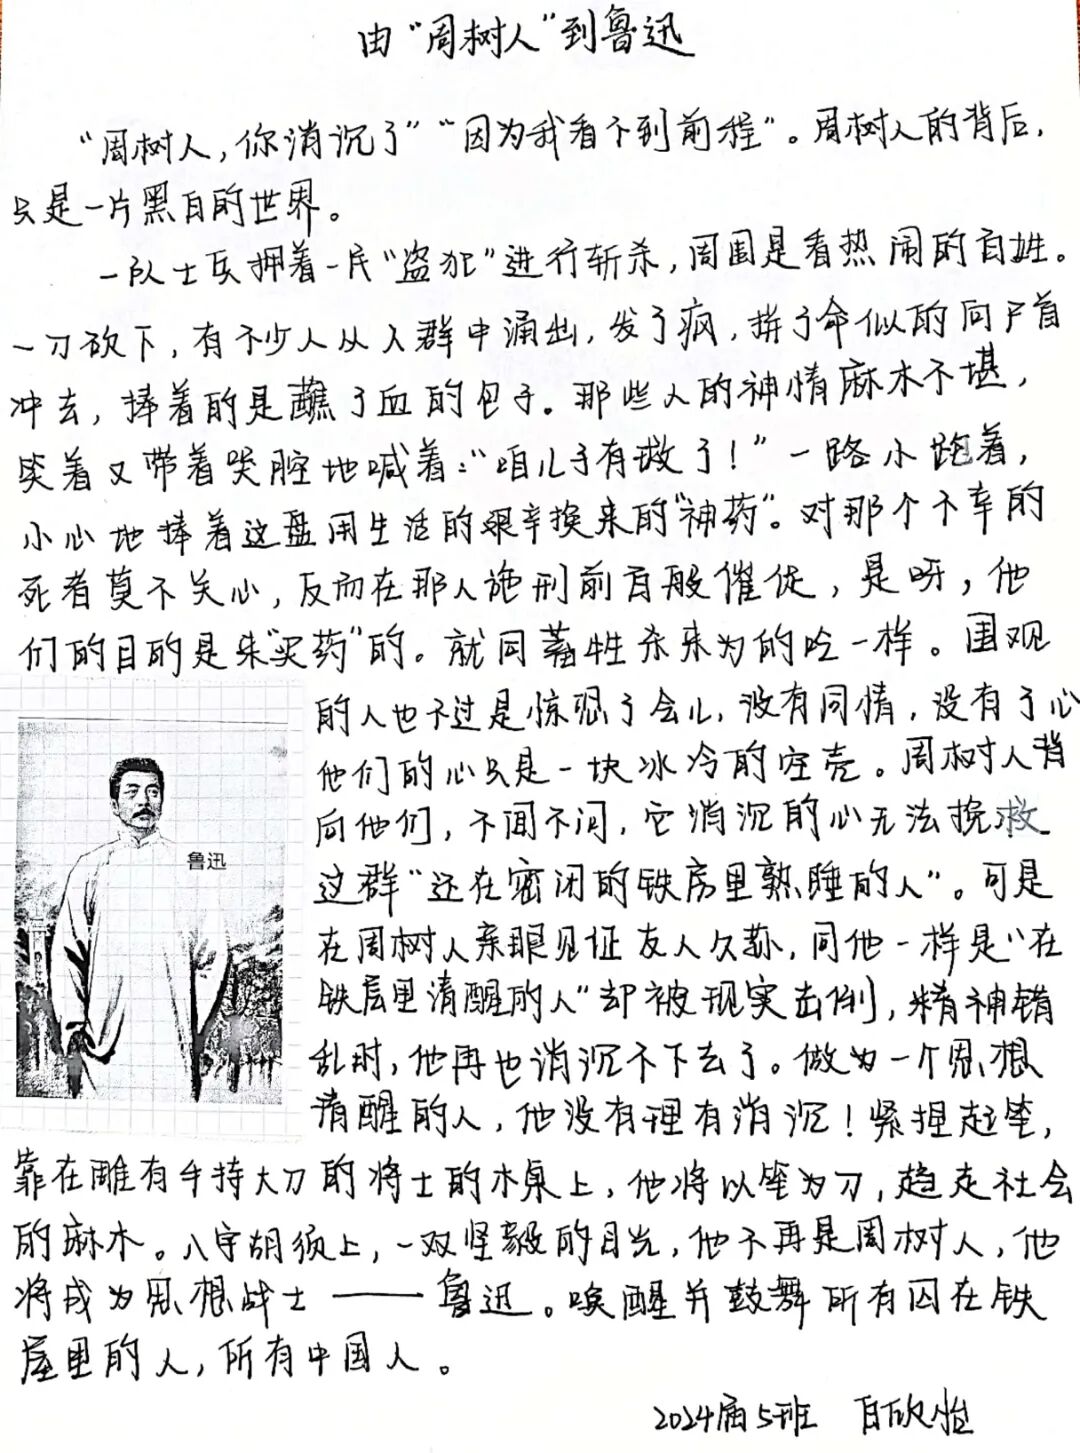 由“周树人”到鲁迅
“周树人，你消沉了”“因为我看不到前程”。周树人的背后，
只是一片黑白的世界。
一队士兵押着一民“盗犯”进行斩杀，周围是看热闹的百姓。
一刀砍下，有不少人从人群中涌出，发了疯，拼了命似的向尸首
冲去，捧着的是蘸了血的包子。那些人的神情麻木不堪，
笑着又带着哭腔地喊着：“咱儿子有救了！”一路小跑着，
小心地捧着这盘用生活的艰辛换来的“神药”。对那个不幸的
死者莫不关心，反而在那人施刑前百般催促，是呀，他
们的目的是来“买药”的。就同畜牲杀来为的吃一样。围观
的人也不过是惊恐了会儿，没有同情，没有了心
他们的心只是一块冰冷的空壳。周树人背
向他们，不闻不问，它消沉的心无法挽救
这群“还在密闭的铁房里熟睡的人”。可是
在周树人亲眼见证友人久荪，同他一样是“在
铁屋里清醒的人”却被现实击倒，精神错
乱时，他再也消沉不下去了。做为一个思想
清醒的人，他没有理有消沉！紧握起笔，
靠在雕有手持大刀的将士的木桌上，他将以笔为刀，趋走社会
的麻木。八字胡须上，一双坚毅的目光，他不再是周树人，他
将成为思想战士——鲁迅。唤醒并鼓舞所有囚在铁
屋里的人，所有中国人。
2024届5班 白欣怡
鲁迅